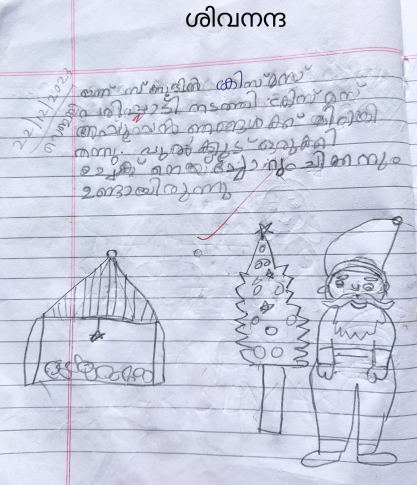 ശിവനന്ദ
22/12/2023
ഇന്ന് സ്കൂളിൽ ക്രിസ്മസ്
പരിപാടി നടത്തി ക്രിസ്മസ്
അപ്പൂപ്പൻ ഞങ്ങൾക്ക് മിഠായി
തന്നു. പുൽക്കൂട് ഒരുക്കി
ഉച്ചക്ക് നെയ്ച്ചോറും ചിക്കനും
ഉണ്ടായിരുന്നു